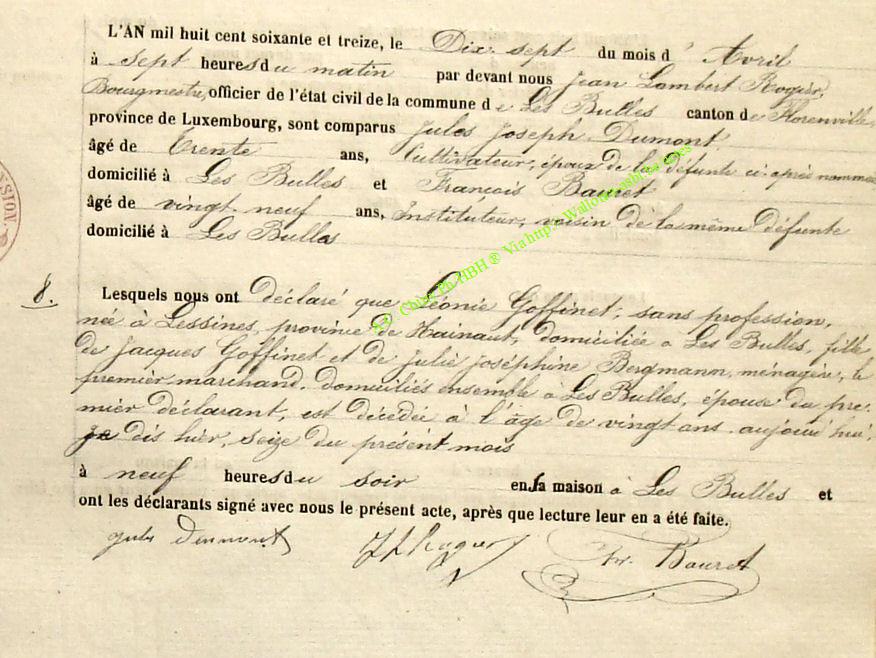 L'AN mil huit cent soixante et treize, le Dix-sept du mois d' Avril
à sept heures du matin par devant nous Jean Lambert Roger,
Bourgmestre, officier de l'état civil de la commune de Les Bulles canton de Florenville,
province de Luxembourg, sont comparus Jules Joseph Dumont,
âgé de Trente ans, Cultivateur, époux de la défunte ci-après nommée
domicilié à Les Bulles et François Bauret
âgé de vingt neuf ans, Instituteur, voisin de la même défunte
domicilié à Les Bulles
8. Lesquels nous ont déclaré que Léonie Goffinet, sans profession,
née à Lessines, province de Hainaut, domiciliée à Les Bulles, fille
de Jacques Goffinet et de Julie Joséphine Bergmann, ménagère, le
premier marchand. domiciliés ensemble à Les Bulles, épouse du pre-
mier déclarant, est décédée à l'âge de vingt ans aujourd'hui,
je dis hier, seize du présent mois
à neuf heures du soir en sa maison à Les Bulles et
ont les déclarants signé avec nous le présent acte, après que lecture leur en a été faite.
jules Dumont JLRoger Fr. Bauret
SION